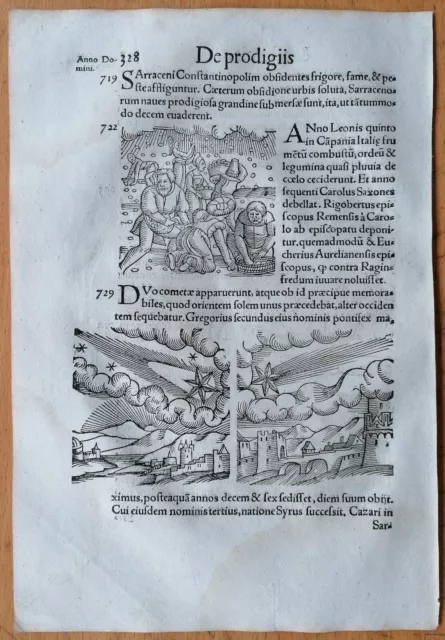 Anno Do-
mini.
328
De prodigiis
719
SArraceni Constantinopolim obsidentes frigore, fame, & pe-
ste affliguntur. Cæterum obsidione urbis soluta, Sarraceno-
rum naues prodigiosa grandine submersæ sunt, ita, ut tãtummo
do decem euaderent.
722
ANno Leonis quinto
in Cãpania Italię fru
mẽtũ combustũ, ordeũ &
legumina quasi pluuia de
cœlo ceciderunt. Et anno
sequenti Carolus Saxones
debellat. Rigobertus epi-
scopus Remensis à Caro-
lo ab epĩscopatu deponi-
tur, quemadmodũ & Eu-
cherius Aurelianensis epi-
scopus, ꝙ contra Ragin-
fredum iuuare noluisset.
729
DVo cometæ apparuerunt, atque ob id præcipue memora-
biles, quod orientem solem unus præcedebat, alter occiden
tem sequebatur. Gregorius secundus eius nominis pontifex ma,
ximus, posteaquã annos decem & sex sedisset, diem suum obijt.
Cui eiusdem nominis tertius, natione Syrus successit. Cazari in
Sar-